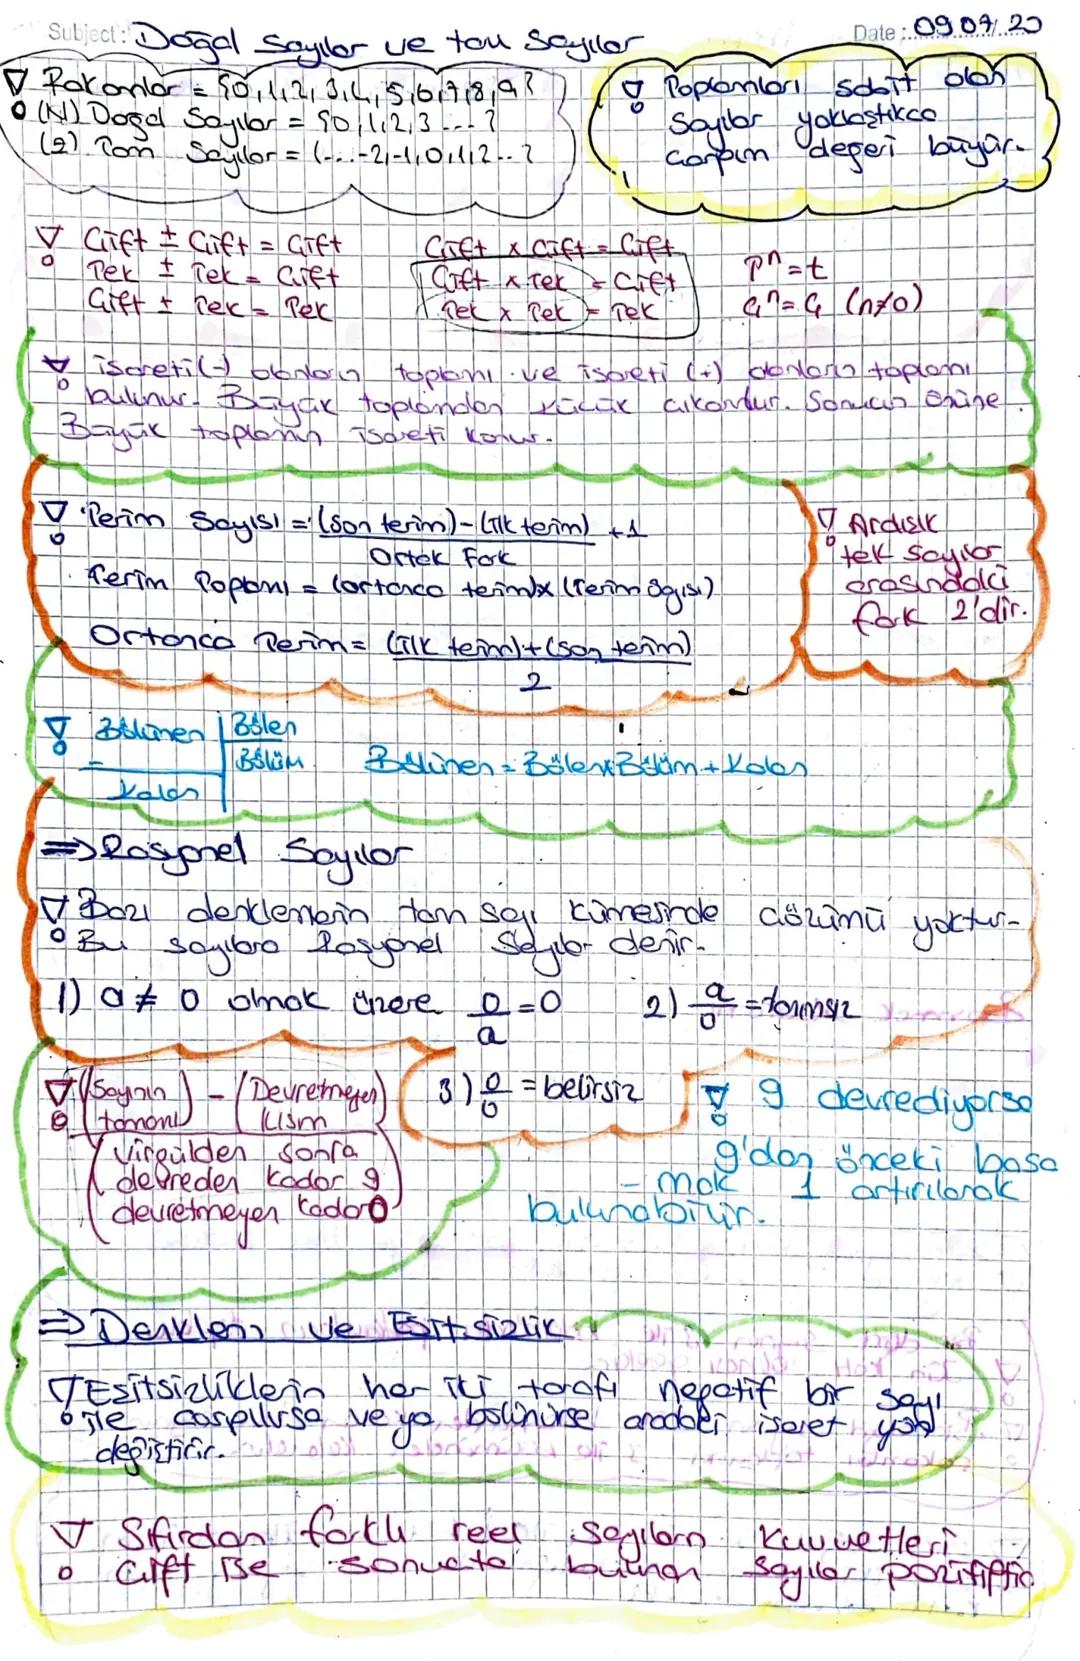 Subject: Doğal Sayılar ve tam Sayılar
Date: 09.09.20
Rakamlar = {0,1,2,3,4,5,6,7,8,9}
(N) Doğal Sayılar = {0,1,2,3...}
(2) Tam Sayılar = (...-2,-1,0,1,2..}
Toplamları sabit olan
Sayılar yaklaştıkca
Çarpım değeri büyür.
Çift ± Çift = Çift
Tek ± Tek = Çift
Çift ± Tek = Tek
Çift x Çift = Çift
Çift x Tek = Çift
Tek x Tek = Tek
Tⁿ=t
Çⁿ=Ç (n≠0)
işareti(-) olanların toplamı ve işareti (+) olanların toplamı
bulunur. Büyük toplamdan küçük çıkarılır. Sonucun önüne
Büyük toplamın işareti konur.
Terim Sayısı = (son terim)-(ilk terim) +1
Ortak Fark
Terim Toplamı = (ortanca terim)x(Terim sayısı)
Ortanca Terim = (ilk terim)+(son terim)
2
Ardışık
tek sayılar
arasındaki
fark 2'dir.
Bölünen | Bölen
- Bölüm
Kalan
Bölünen = BölenxBölüm+Kalan
⇒ Rasyonel Sayılar
Bazı denklemlerin tam sayı kümesinde çözümü yoktur-
Bu sayılara Rasyonel Sayılar denir.
1) a ≠ 0 olmak üzere 0/a = 0
2) a/0 = tanımsız
3) 0/0 = belirsiz
(Sayının tamamı) - (Devretmeyen kısım)
(virgülden sonra
devreden kadar 9
devretmeyen kadar 0)
9 devrediyorsa
9'dan önceki basa
-mak 1 artırılarak
bulunabilir.
⇒ Denklem ve Eşitsizlik
Eşitsizliklerin her iki tarafı negatif bir sayı
ile çarpılırsa veya bölünürse aradaki işaret yön
değiştirir.
Sıfırdan farklı reel sayıların kuvvetleri
çift ise sonuçta bulunan sayılar pozitiftir